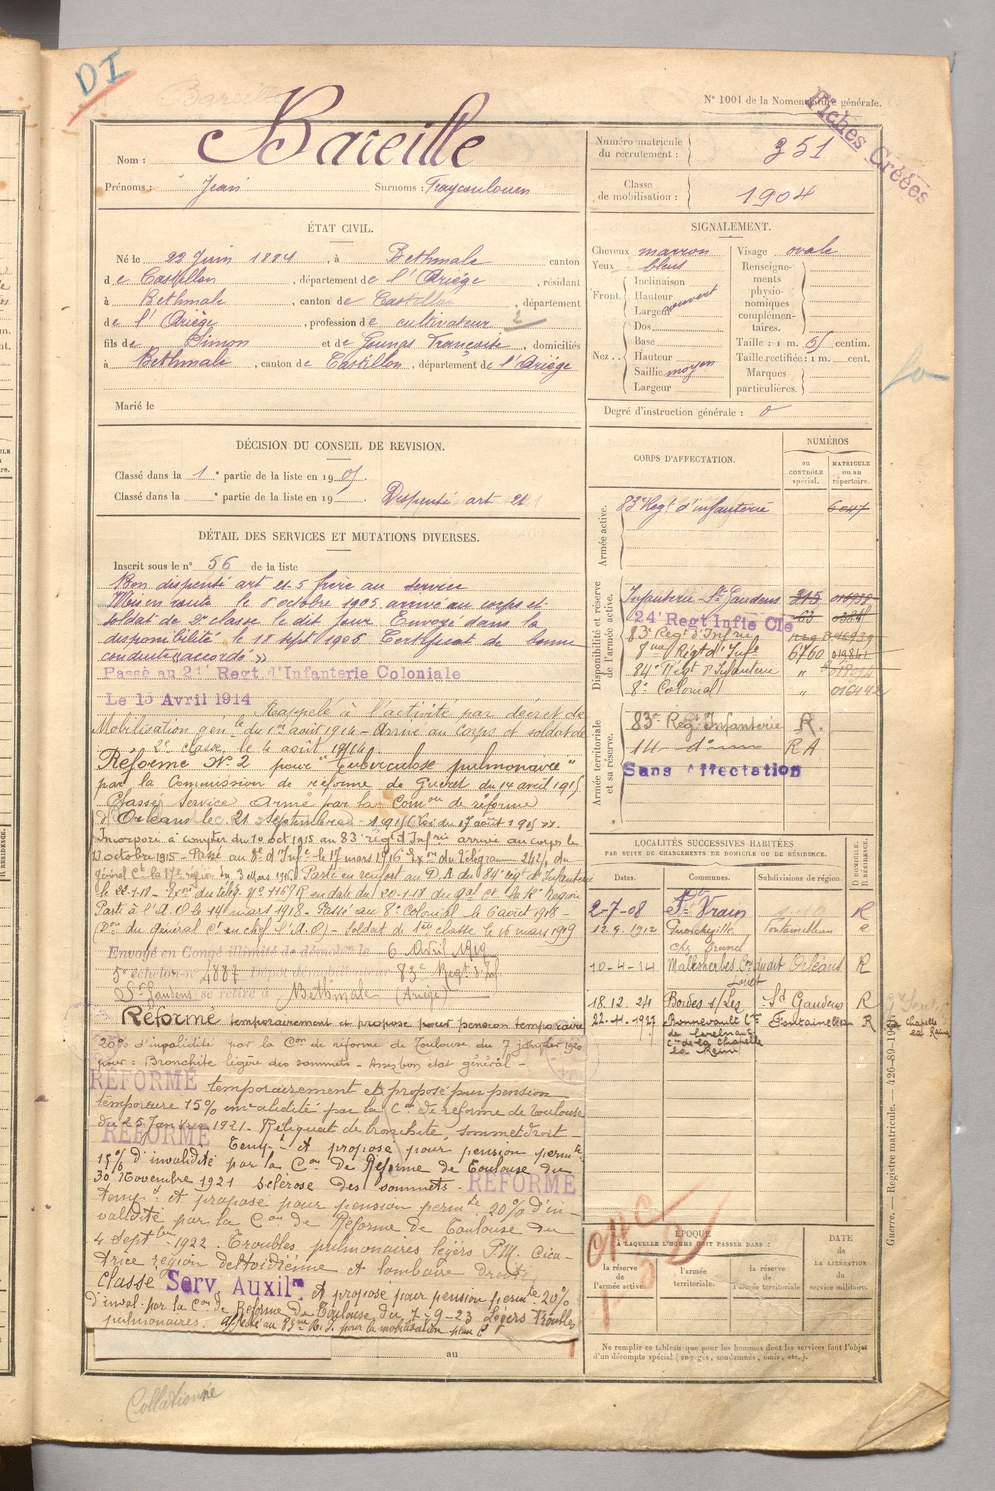 DI
N° 1001 de la Nomenclature générale.
Fichés Créées
Nom : Bareille
Prénoms : Jean Surnoms :
Numéro matricule du recrutement : 351
Classe de mobilisation : 1904
ÉTAT CIVIL.
Né le 22 Juin 1884, à Bethmale canton
de Castillon, département de l'Ariège, résidant
à Bethmale, canton de Castillon, département
de l'Ariège, profession de cultivateur 2
fils de Simon et de Française, domiciliés
à Bethmale, canton de Castillon, département de l'Ariège
Marié le
SIGNALEMENT.
Cheveux marron
Yeux bleus
Front. Inclinaison
Hauteur couvert
Largeur
Nez. Dos
Base
Hauteur
Saillie moyen
Largeur
Visage ovale
Renseignements physionomiques complémentaires.
Taille : 1 m. 61 centim.
Taille rectifiée : 1 m. cent.
Marques particulières.
Degré d'instruction générale : 0
DÉCISION DU CONSEIL DE REVISION.
Classé dans la 1e partie de la liste en 1905.
Classé dans la e partie de la liste en 19 . Dispensé art 21
DÉTAIL DES SERVICES ET MUTATIONS DIVERSES.
Inscrit sous le n° 56 de la liste
Bon dispensé art 21-5 frère au service
Mis en route le 8 octobre 1905 arrivé au corps et
soldat de 2e classe le dit jour Envoyé dans la
disponibilité le 18 sept 1906 Certificat de bonne
conduite "accordé"
Passé au 24e Regt. d'Infanterie Coloniale
Le 15 Avril 1914
Rappelé à l'activité par décret de
Mobilisation génle du 1er août 1914 - Arrivé au Corps et soldat de
2e classe, le 4 août 1914.
Réformé N° 2 pour "tuberculose pulmonaire"
par la Commission de réforme de Guéret du 14 avril 1915
Classé Service Armé par la Comon de réforme
d'Orléans le 21 septembre 1915 (Loi du 17 août 1915).
Incorporé à compter du 10 oct 1915 au 83e régt d'Infrie arrivé au corps le
13 octobre 1915 - Passé au 8e d'Infie le 17 mars 1916 Ex on du Télégram 242/4 du
général Ct la 17e région du 3 Mars 1916. Passé en renfort au D.A du 84e régt d'Infanterie
le 22-1-18 - Exon du télég. N° 1167 R en date du 20-1-18 du Gal Ct la 17e Région
Parti à l'A.O le 14 mars 1918 - Passé au 8e Colonial le 6 aout 1918 -
(Don du Général Ct en chef l'A.O) - Soldat de 1ère classe le 16 mars 1919
Envoyé en Congé illimité de démobon le 6 Avril 1919
5e échelon n° 4887 Dépôt démobilisateur 83e Régt d'Ie
St Gaudens se retire à Bethmale (Ariège)
Réformé temporairement et proposé pour pension temporaire
20% d'invalidité par la Con de réforme de Toulouse du 7 janvier 1920
pour : Bronchite légère des sommets - Assez bon état général -
RÉFORMÉ temporairement et proposé pour pension
temporaire 15% invalidité par la Con de réforme de Toulouse
du 25 Janvier 1921. Reliquat de bronchite, sommet droit -
RÉFORMÉ Tempt et proposé pour pension permte
15% d'invalidité par la Con de Réforme de Toulouse du
30 Novembre 1921 sclérose des sommets. RÉFORMÉ
tempt et proposé pour pension permte 20% d'in-
validité par la Con de Réforme de Toulouse du
4 Septbre 1922. Troubles pulmonaires légers P.M. Cica-
trice région deltoïdienne et lombaire droite.
Classé Serv Auxilre et proposé pour pension permte 20%
d'inval. par la Con de Réforme de Toulouse du 7-9-23 Légers troubles
pulmonaires. Affecté au 83me R.I. pour la mobilisation plan
au
CORPS D'AFFECTATION.
NUMÉROS
au CONTRÔLE spécial.
MATRICULE ou au répertoire.
Armée active.
83e Regt d'infanterie 6047
Disponibilité et réserve de l'armée active.
Infanterie St Gaudens 315
24e Regt Infie Cle 63
83e Regt d'Infrie
8me Régt d'Infie 6760
84e Régt d'Infanterie "
8e Colonial " 016442
Armée territoriale et sa réserve.
83e Regt Infanterie R.
14 do RA
Sans Affectation
LOCALITÉS SUCCESSIVES HABITÉES
PAR SUITE DE CHANGEMENTS DE DOMICILE OU DE RÉSIDENCE.
Dates. Communes. Subdivisions de région. D. DOMICILE. R. RÉSIDENCE.
2-7-08 St Vrain R
12.9.1912 Guercheville Fontainebleau R
10-4-14 Malesherbes Orléans R
Loiret
18.12.24 Bordes s/Lez St Gaudens R
22-4-1927 Fontainebleau R
ce de la Chapelle
la Reine
la Chapelle la Reine
ÉPOQUE
À LAQUELLE L'HOMME DOIT PASSER DANS :
la réserve de l'armée active.
l'armée territoriale.
la réserve de l'armée territoriale
DATE de LA LIBÉRATION du service militaire.
Ne remplir ce tableau que pour les hommes dont les services font l'objet
d'un décompte spécial (engagés, condamnés, omis, etc.).
Guerre. — Registre matricule. — 426-89-19
Collationné